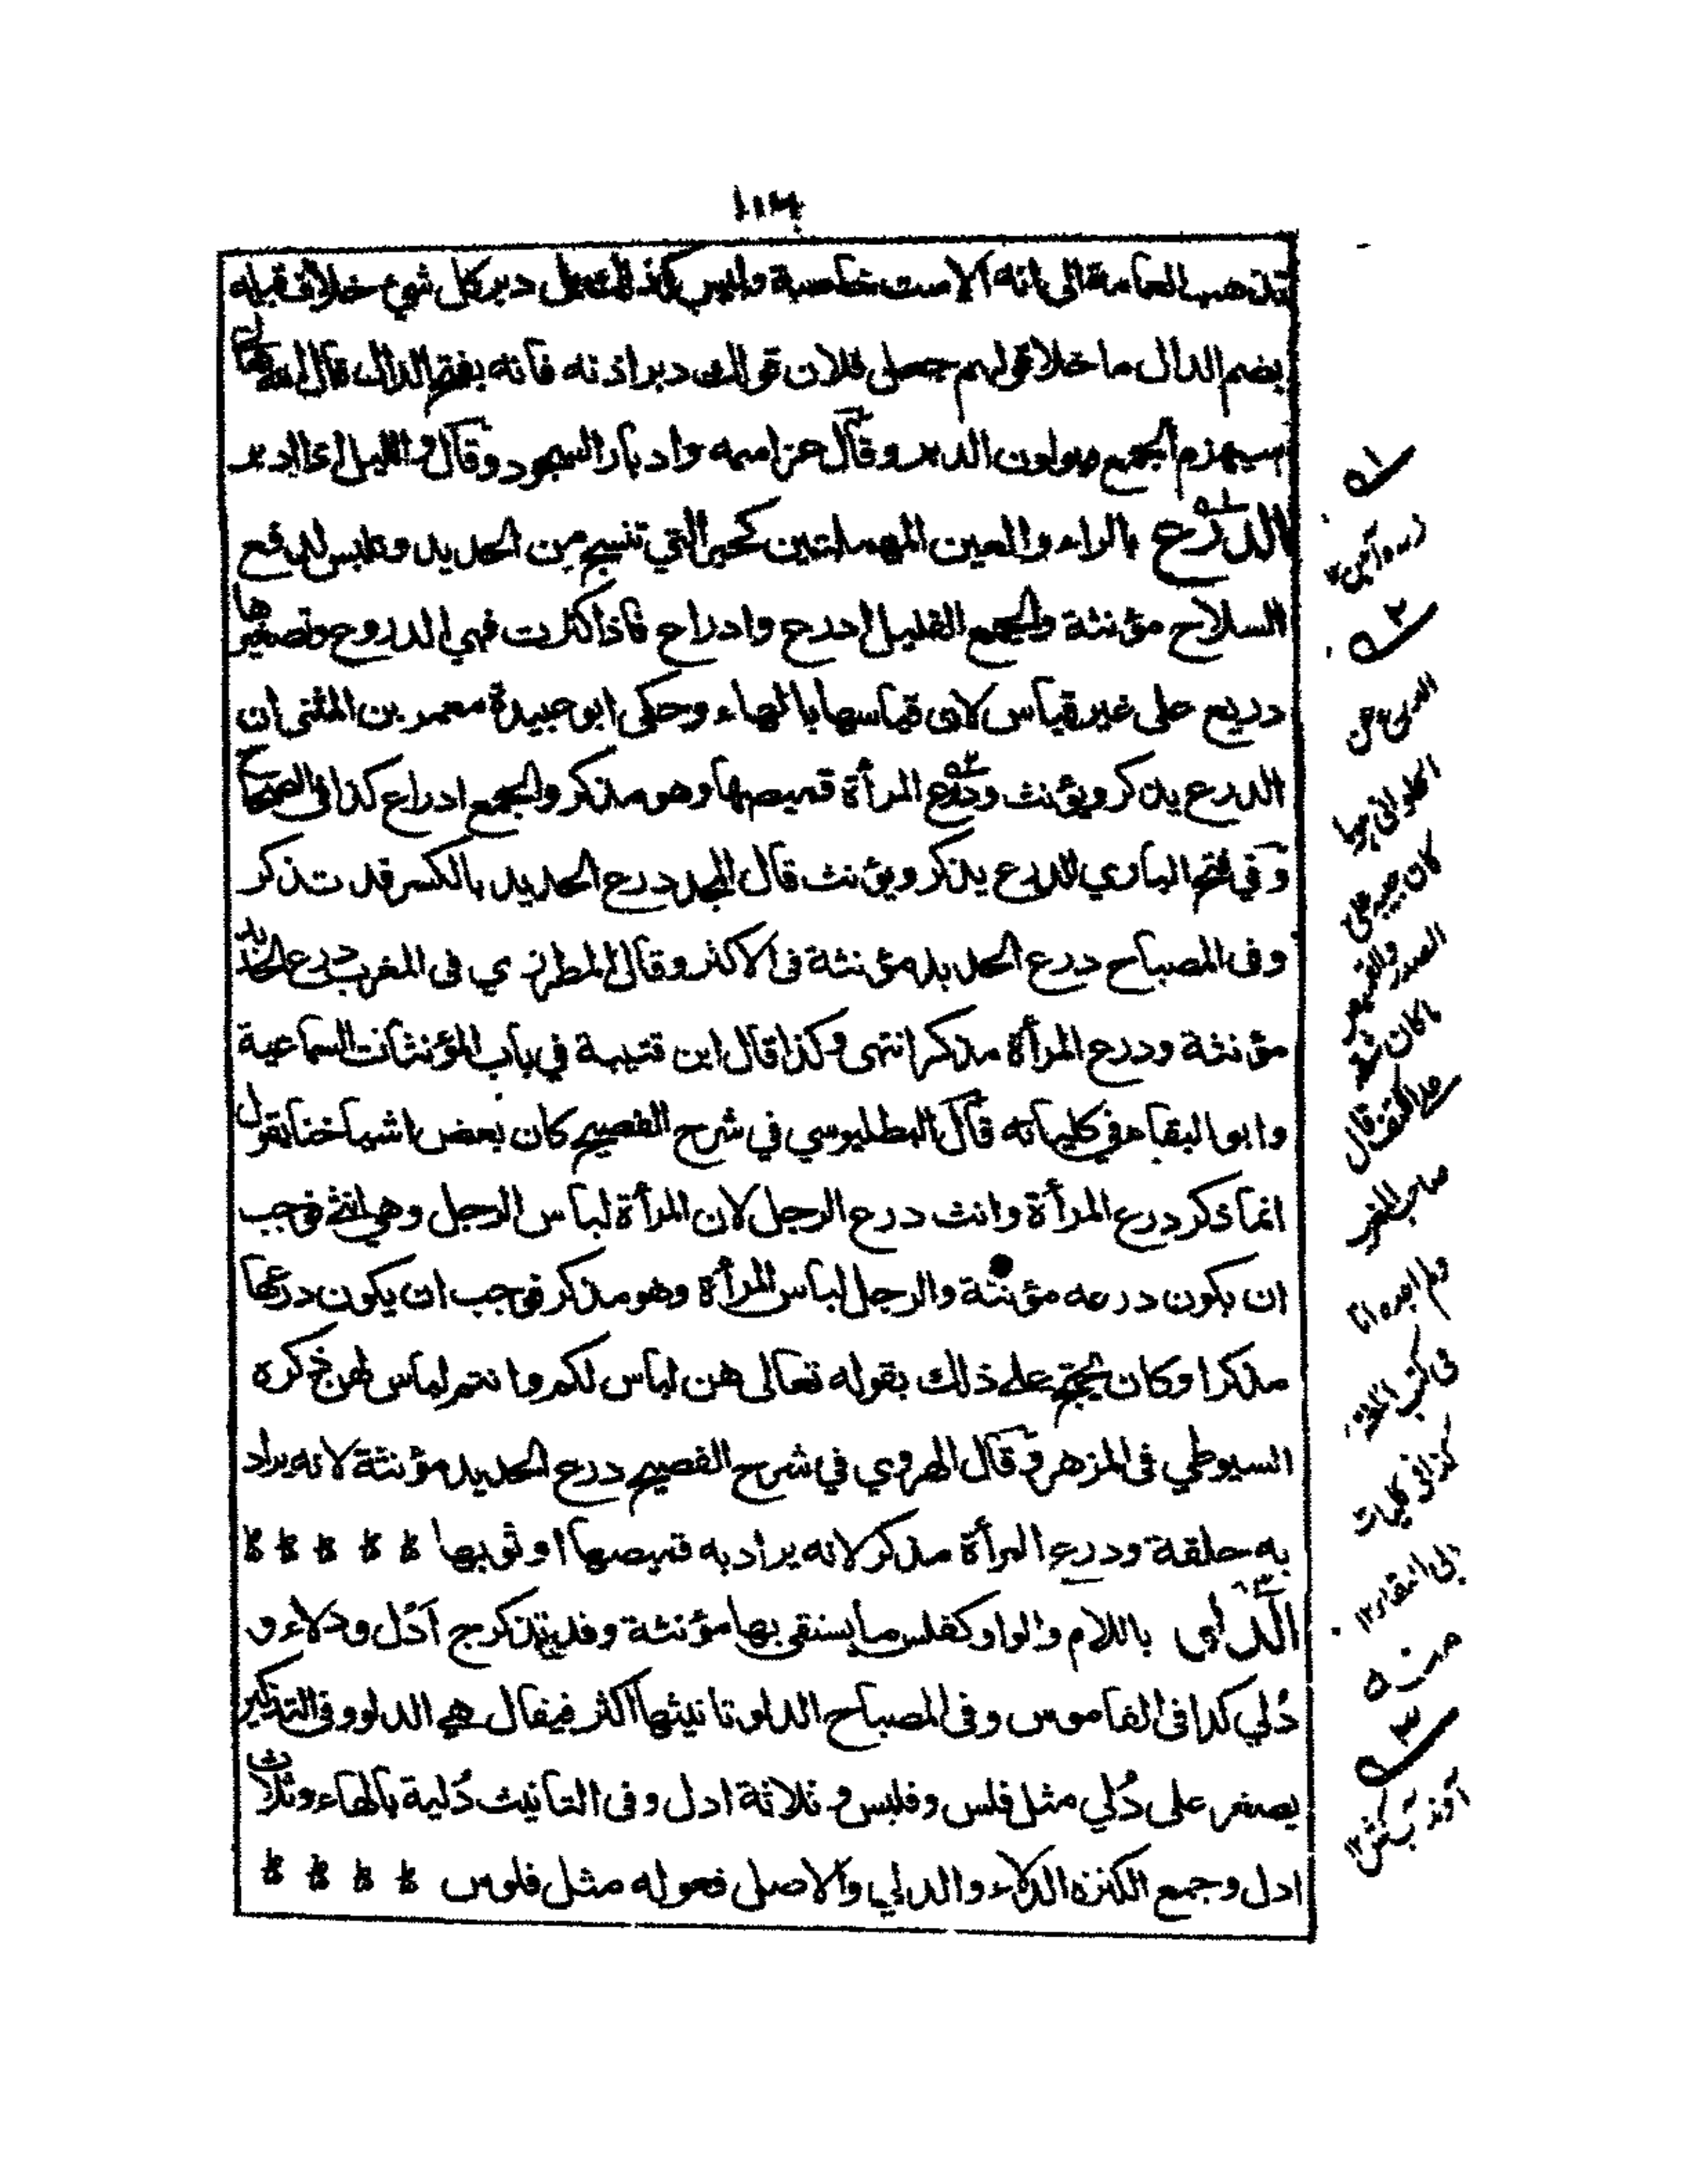 تذهب العامة الى انه الاست خاصة وليس كذلك بل دبر كل شيء خلاف قبله
بضم الدال ما خلا قولهم جعل فلان قولك دبر اذنه فانه بفتح الدال قال الله تعالى
سيهزم الجمع ويولون الدبر وقال عز اسمه وادبار السجود وقال والليل اذا ادبر
الدرع بالراء والعين المهملتين كحبر التي تنسج من الحديد وتلبس لدفع
السلاح مؤنثة والجمع القليل ادرع وادراع فاذا كثرت فهي الدروع وتصغيرها
دريع على غير قياس لان قياسها بالهاء وحكى ابو عبيدة معمر بن المثنى ان
الدرع يذكر ويؤنث ودرع المرأة قميصها وهو مذكر والجمع ادراع كذا فى الصحاح
وفي فتح الباري الدرع يذكر ويؤنث قال المجد درع الحديد بالكسر قد تذكر
وفى المصباح درع الحديد مؤنثة فى الاكثر وقال المطرزي فى المغرب درع الحديد
مؤنثة ودرع المرأة مذكر انتهى وكذا قال ابن قتيبة في باب المؤنثات السماعية
وابو البقاء في كلياته قال البطليوسي في شرح الفصيح كان بعض اشياخنا يقول
انما ذكر درع المرأة وانث درع الرجل لان المرأة لباس الرجل وهي انثى فوجب
ان يكون درعه مؤنثة والرجل لباس المرأة وهو مذكر فوجب ان يكون درعها
مذكرا وكان يحتج على ذلك بقوله تعالى هن لباس لكم وانتم لباس لهن ذكره
السيوطي فى المزهر وقال الهروي في شرح الفصيح درع الحديد مؤنثة لانه يراد
به حلقة ودرع المرأة مذكر لانه يراد به قميصها او ثوبها
الدلو باللام والواو كفلس ما يستقى بها مؤنثة وقد تذكر ج آدل ودلاء و
دُلي كذا فى القاموس وفى المصباح الدلو تانيثها اكثر فيقال هي الدلو وفى التذكير
يصغر على دُلي مثل فلس وفليس و ثلاثة ادل وفى التانيث دُلية بالهاء وثلاث
ادل وجمع الكثرة الدلاء والدلي والاصل فعوله مثل فلوس
١
زره آهنى
٢
كان جيبه على
الصدر
قال
صاحب المغرب
ولم اجده انا
فى كتب اللغة
كذا فى كليات
ابى البقاء ١٢
٣
آوند آب كش ١٢